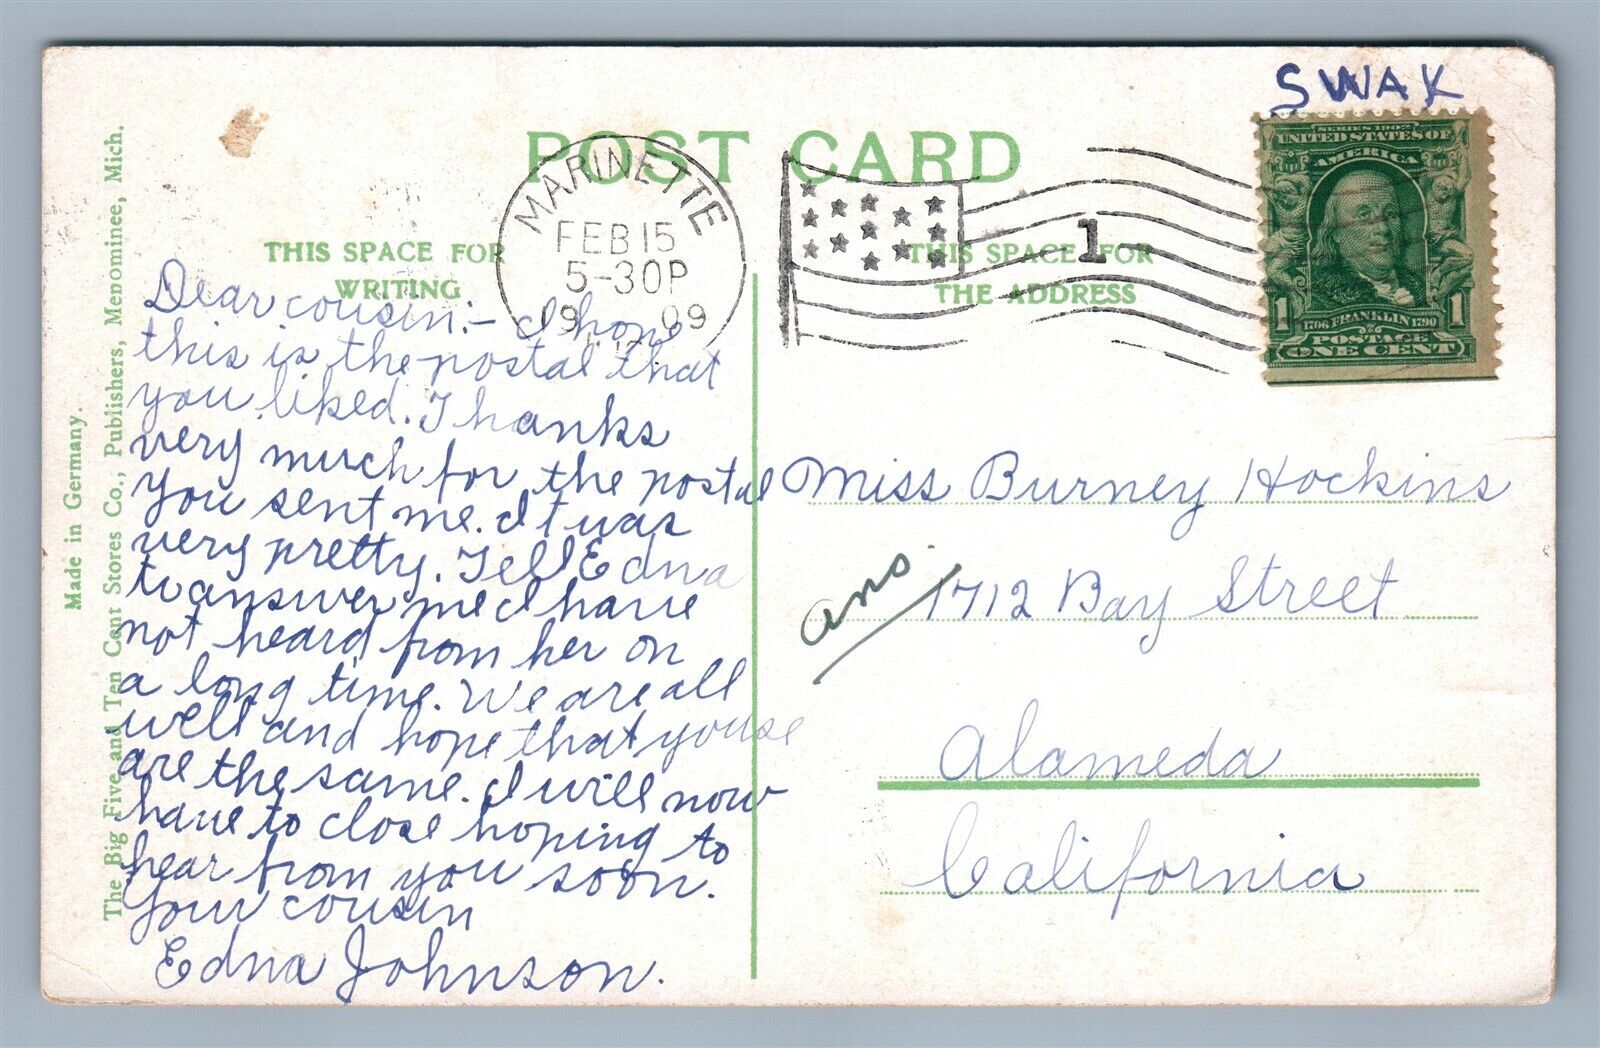 SWAK
POST CARD
MARINETTE
FEB 15
5-30P
1909
1
SERIES 1902
UNITED STATES OF
AMERICA
1 1706 FRANKLIN 1790 1
POSTAGE
ONE CENT
THIS SPACE FOR
WRITING
THIS SPACE FOR
THE ADDRESS
Dear cousin:- I hope
this is the postal that
you liked. Thanks
very much for the postal
you sent me. It was
very pretty. Tell Edna
to answer me I have
not heard from her on
a long time. We are all
well and hope that youse
are the same. I will now
have to close hoping to
hear from you soon.
Your cousin
Edna Johnson.
Miss Burney Hockins
ans.
1712 Bay Street
Alameda
California
Made in Germany.
The Big Five and Ten Cent Stores Co., Publishers, Menominee, Mich.